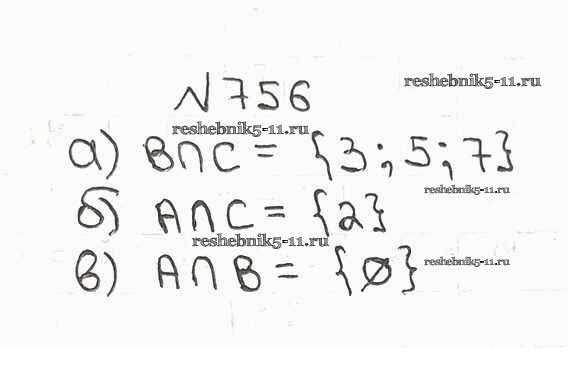 N 756
reshebnik5-11.ru
reshebnik5-11.ru
а) B∩C = {3; 5; 7}
reshebnik5-11.ru
б) A∩C = {2}
reshebnik5-11.ru
в) A∩B = {∅}
reshebnik5-11.ru